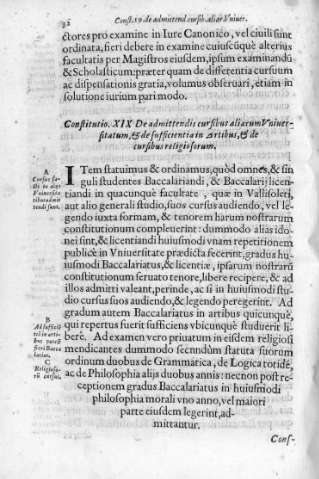 32 Const. 19 de admittend. cursib. aliar Vniuer.
ctores pro examine in Iure Canonico, vel ciuili sunt
ordinata, fieri debere in examine cuiuscūque alterius
facultatis per Magistros eiusdem, ipsum examinandū
& Scholasticum: præter quam de differentia cursuum
ac dispensationis gratia, volumus obseruari, etiam in
solutione iurium pari modo.
Constitutio. XIX De admittendis cursibus aliarum Vniuer-
sitatum, & de sufficientia in Artibus, & de
cursibus religiosorum.
A
Cursus fa-
cti in alijs
Vniuersita
tibus admit
tendi sunt.
ITem statuimus & ordinamus, quòd omnes, & sin
guli studentes Baccalariandi, & Baccalarij licen-
tiandi in quacunque facultate, quæ in Vallisoleti,
aut alio generali studio, suos cursus audiendo, vel le-
gendo iuxta formam, & tenorem harum nostrarum
constitutionum compleuerint: dummodo alias ido-
nei sint, & licentiandi huiusmodi vnam repetitionem
publicè in Vniuersitate prædicta fecerint, gradus hu-
iusmodi Baccalariatus, & licentiæ, ipsarum nostrarū
constitutionum seruato tenore, libere recipere, & ad
illos admitti valeant, perinde, ac si in huiusmodi stu-
dio cursus suos audiendo, & legendo peregerint. Ad
gradum autem Baccalariatus in artibus quicunquè,
qui repertus fuerit sufficiens vbicunquè studuerit li-
berè. Ad examen vero priuatum in eisdem religiosi
mendicantes dummodo secundùm statuta suorum
ordinum duobus de Grammatica, de Logica totidē,
ac de Philosophia alijs duobus annis: necnon post re-
ceptionem gradus Baccalariatus in huiusmodi
philosophia morali vno anno, vel maiori
parte eiusdem legerint, ad-
mittantur.
B
Ad sufficiē
C
Religioso-
rū cursus.
Cons-